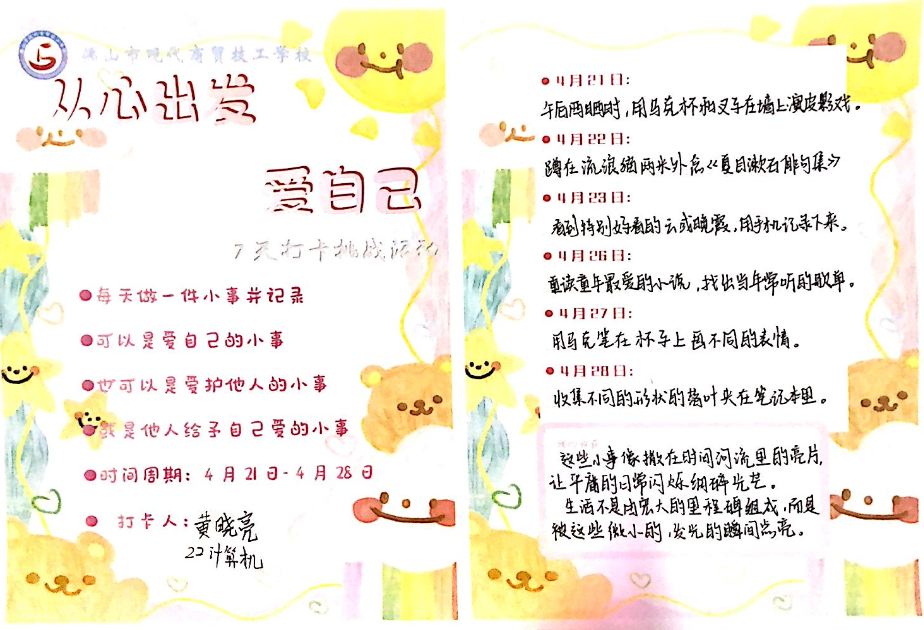 佛山市现代商贸技工学校
从心出发
爱自己
7天打卡挑战活动
每天做一件小事并记录
可以是爱自己的小事
也可以是爱护他人的小事
或是他人给予自己爱的小事
时间周期：4月21日-4月28日
打卡人：黄晓亮
22计算机
4月21日：
午后两晒时，用马克杯和叉车在墙上演皮影戏。
4月22日：
蹲在流浪猫两米外念《夏目漱石俳句集》
4月23日：
看到特别好看的云或晚霞，用手机记录下来。
4月26日：
重读童年最爱的小说，找出当年常听的歌单。
4月27日：
用马克笔在杯车上画不同的表情。
4月28日：
收集不同的形状的落叶夹在笔记本里。
这些小事像撒在时间河流里的亮片，
让平庸的日常闪烁细碎光芒。
生活不是由宏大的里程碑组成，而是
被这些微小的，发光的瞬间点亮。